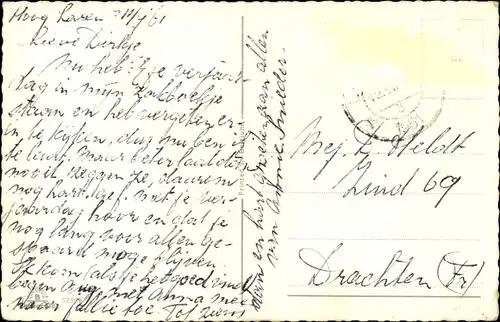 Hoog Soeren 31/7/61
Lieve Dirkje
Nu heb ik je verjaar
dag in mijn zakboekje
staan en heb vergeten er
in te kijken, dus nu ben ik
te laat. Maar beter laat dan
nooit, zeggen ze, daarom
nog hart. gef. met je ver-
jaardag hoor en dat je
nog lang voor allen ge-
spaard moge blijven.
Ik kom (als je het goed vindt)
begin Aug. met Anna mee
naar jullie toe. Tot ziens
dan en hart. groeten aan allen
van Antonie Snieder.
Mej. D. Heldt
Zuid 69
Drachten (Fr.)